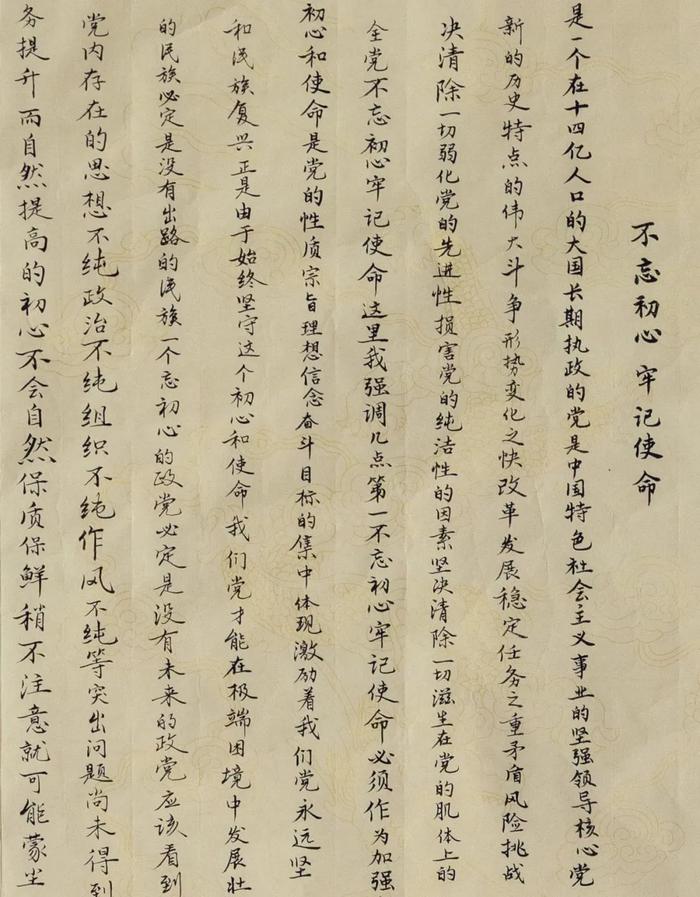 不忘初心 牢记使命
是一个在十四亿人口的大国长期执政的党是中国特色社会主义事业的坚强领导核心党
新的历史特点的伟大斗争形势变化之快改革发展稳定任务之重矛盾风险挑战
决清除一切弱化党的先进性损害党的纯洁性的因素坚决清除一切滋生在党的肌体上的
全党不忘初心牢记使命这里我强调几点第一不忘初心牢记使命必须作为加强
初心和使命是党的性质宗旨理想信念奋斗目标的集中体现激励着我们党永远坚
和民族复兴正是由于始终坚守这个初心和使命我们党才能在极端困境中发展壮
的民族必定是没有出路的民族一个忘初心的政党必定是没有未来的政党应该看到
党内存在的思想不纯政治不纯组织不纯作风不纯等突出问题尚未得到
务提升而自然提高的初心不会自然保质保鲜稍不注意就可能蒙尘